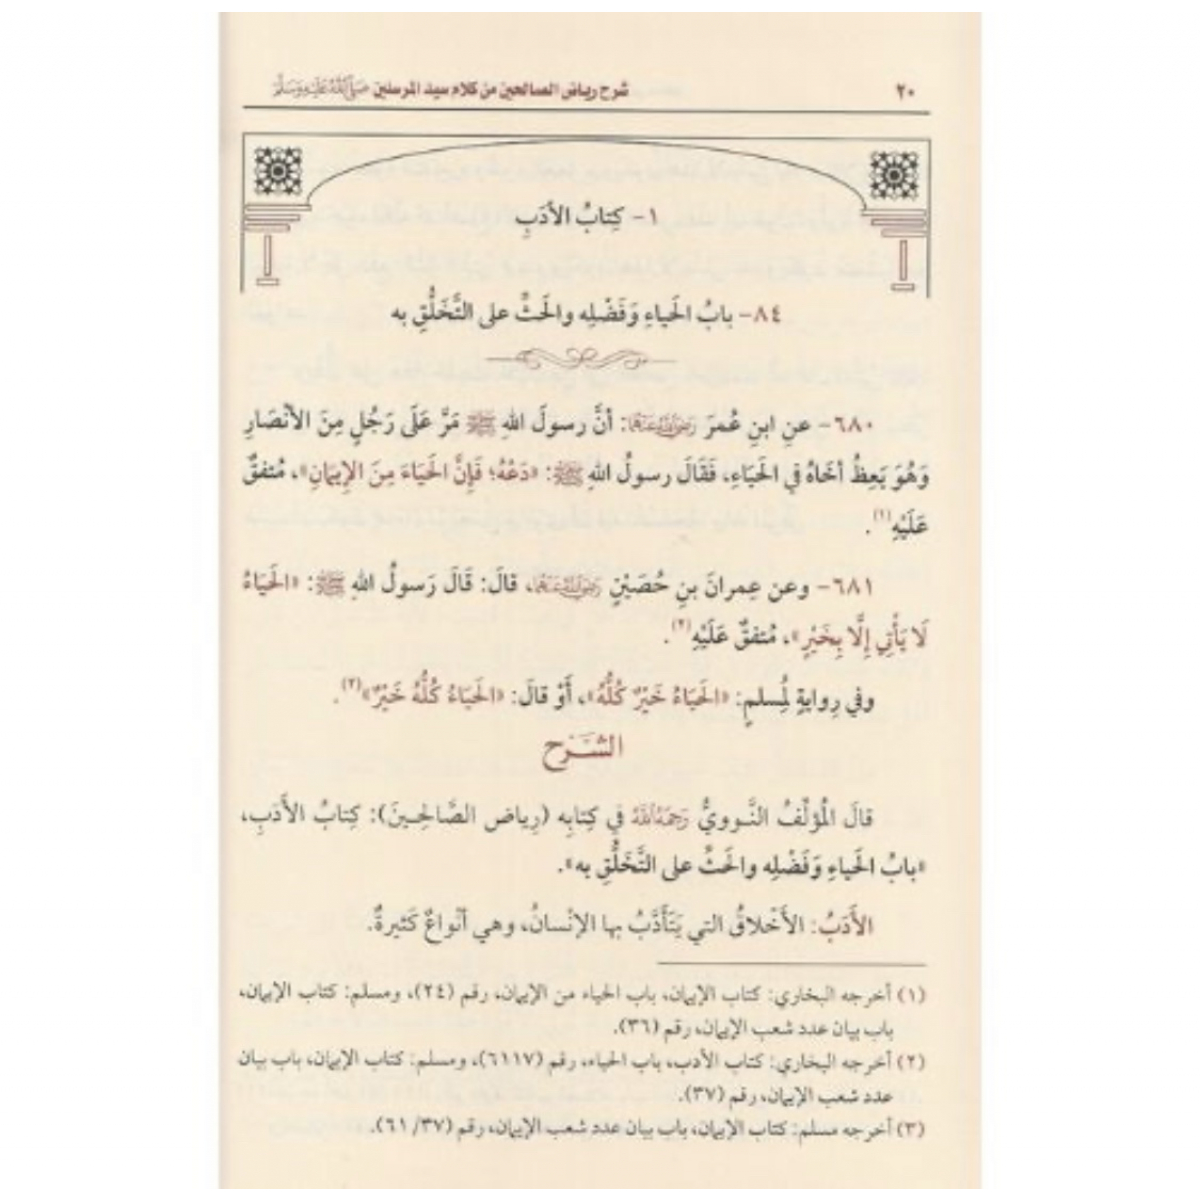 ٢٠ شرح رياض الصالحين من كلام سيد المرسلين صَلَّى اللَّهُ عَلَيْهِ وَسَلَّمَ
١- كِتابُ الأَدَبِ
٨٤- بابُ الحَياءِ وَفَضْلِه والحَثِّ على التَّخَلُّقِ به
٦٨٠- عنِ ابنِ عُمرَ رَضِيَ اللَّهُ عَنْهُمَا: أنَّ رسولَ اللهِ ﷺ مَرَّ عَلَى رَجُلٍ مِنَ الأَنْصَارِ
وَهُوَ يَعِظُ أَخَاهُ في الحَيَاءِ، فَقَالَ رسولُ اللهِ ﷺ: «دَعْهُ؛ فَإِنَّ الحَيَاءَ مِنَ الإِيمَانِ»، مُتفقٌ
عَلَيْهِ(١).
٦٨١- وعن عِمرانَ بنِ حُصَيْنٍ رَضِيَ اللَّهُ عَنْهُمَا، قالَ: قَالَ رَسولُ اللهِ ﷺ: «الحَيَاءُ
لَا يَأْتِي إِلَّا بِخَيْرٍ»، مُتفقٌ عَلَيْهِ(٢).
وفي رِوايةٍ لمُسلمٍ: «الحَيَاءُ خَيْرٌ كُلُّهُ»، أَوْ قالَ: «الحَيَاءُ كُلُّهُ خَيْرٌ»(٣).
الشَّرْح
قالَ المُؤلِّفُ النَّوويُّ رَحِمَهُ اللَّهُ في كِتابِه (رِياض الصَّالحِينَ): كِتابُ الأَدَبِ،
«بابُ الحَياءِ وَفَضْلِه والحَثِّ على التَّخَلُّقِ به».
الأَدَبُ: الأَخْلاقُ التي يَتَأَدَّبُ بها الإنْسانُ، وهي أنْواعٌ كَثيرةٌ.
(١) أخرجه البخاري: كتاب الإيمان، باب الحياء من الإيمان، رقم (٢٤)، ومسلم: كتاب الإيمان،
باب بيان عدد شعب الإيمان، رقم (٣٦).
(٢) أخرجه البخاري: كتاب الأدب، باب الحياء، رقم (٦١١٧)، ومسلم: كتاب الإيمان، باب بيان
عدد شعب الإيمان، رقم (٣٧).
(٣) أخرجه مسلم: كتاب الإيمان، باب بيان عدد شعب الإيمان، رقم (٦١/٣٧).